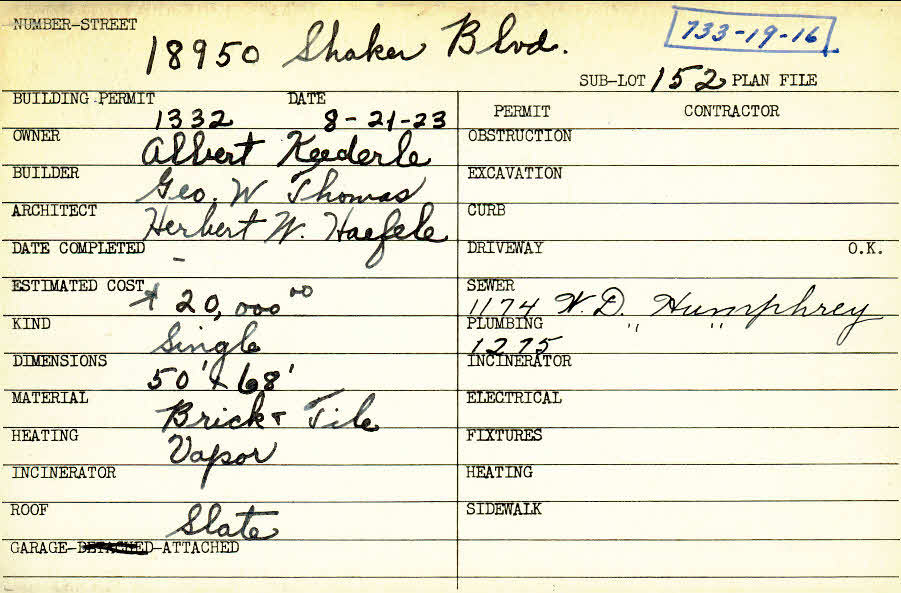 NUMBER-STREET
18950 Shaker Blvd.
733-19-16
SUB-LOT 152 PLAN FILE
BUILDING PERMIT DATE
1332 8-21-23
OWNER
Albert Keederle
BUILDER
Geo. W Thomas
ARCHITECT
Herbert W. Haefele
DATE COMPLETED
-
ESTIMATED COST
$20,000 00
KIND
Single
DIMENSIONS
50' x 68'
MATERIAL
Brick & Tile
HEATING
Vapor
INCINERATOR
ROOF
Slate
GARAGE-DETACHED-ATTACHED
PERMIT CONTRACTOR
OBSTRUCTION
EXCAVATION
CURB
DRIVEWAY O.K.
SEWER
1174 W.D. Humphrey
PLUMBING " "
1275
INCINERATOR
ELECTRICAL
FIXTURES
HEATING
SIDEWALK